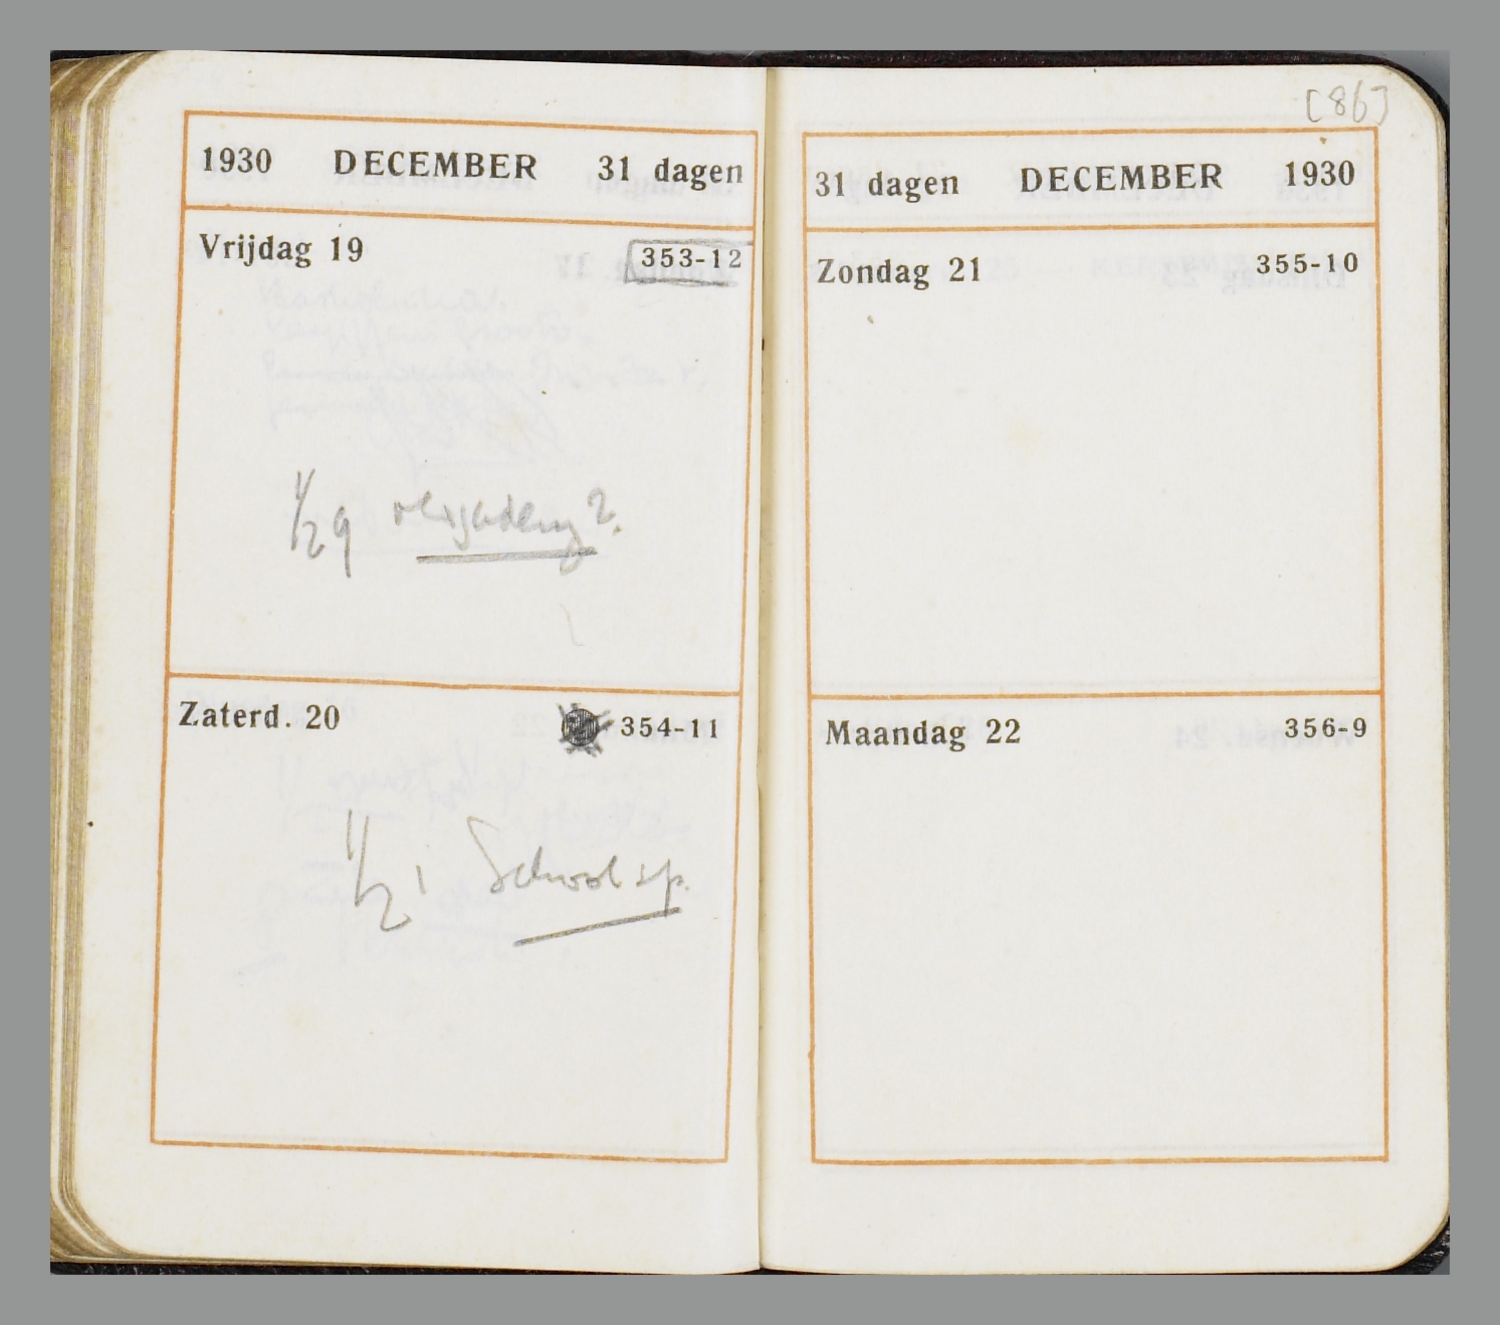 1930 DECEMBER 31 dagen
Vrijdag 19 353-12
1/2 9 vergadering?
Zaterd. 20 354-11
1/2 1 Schoolsp.
[86]
31 dagen DECEMBER 1930
Zondag 21 355-10
Maandag 22 356-9